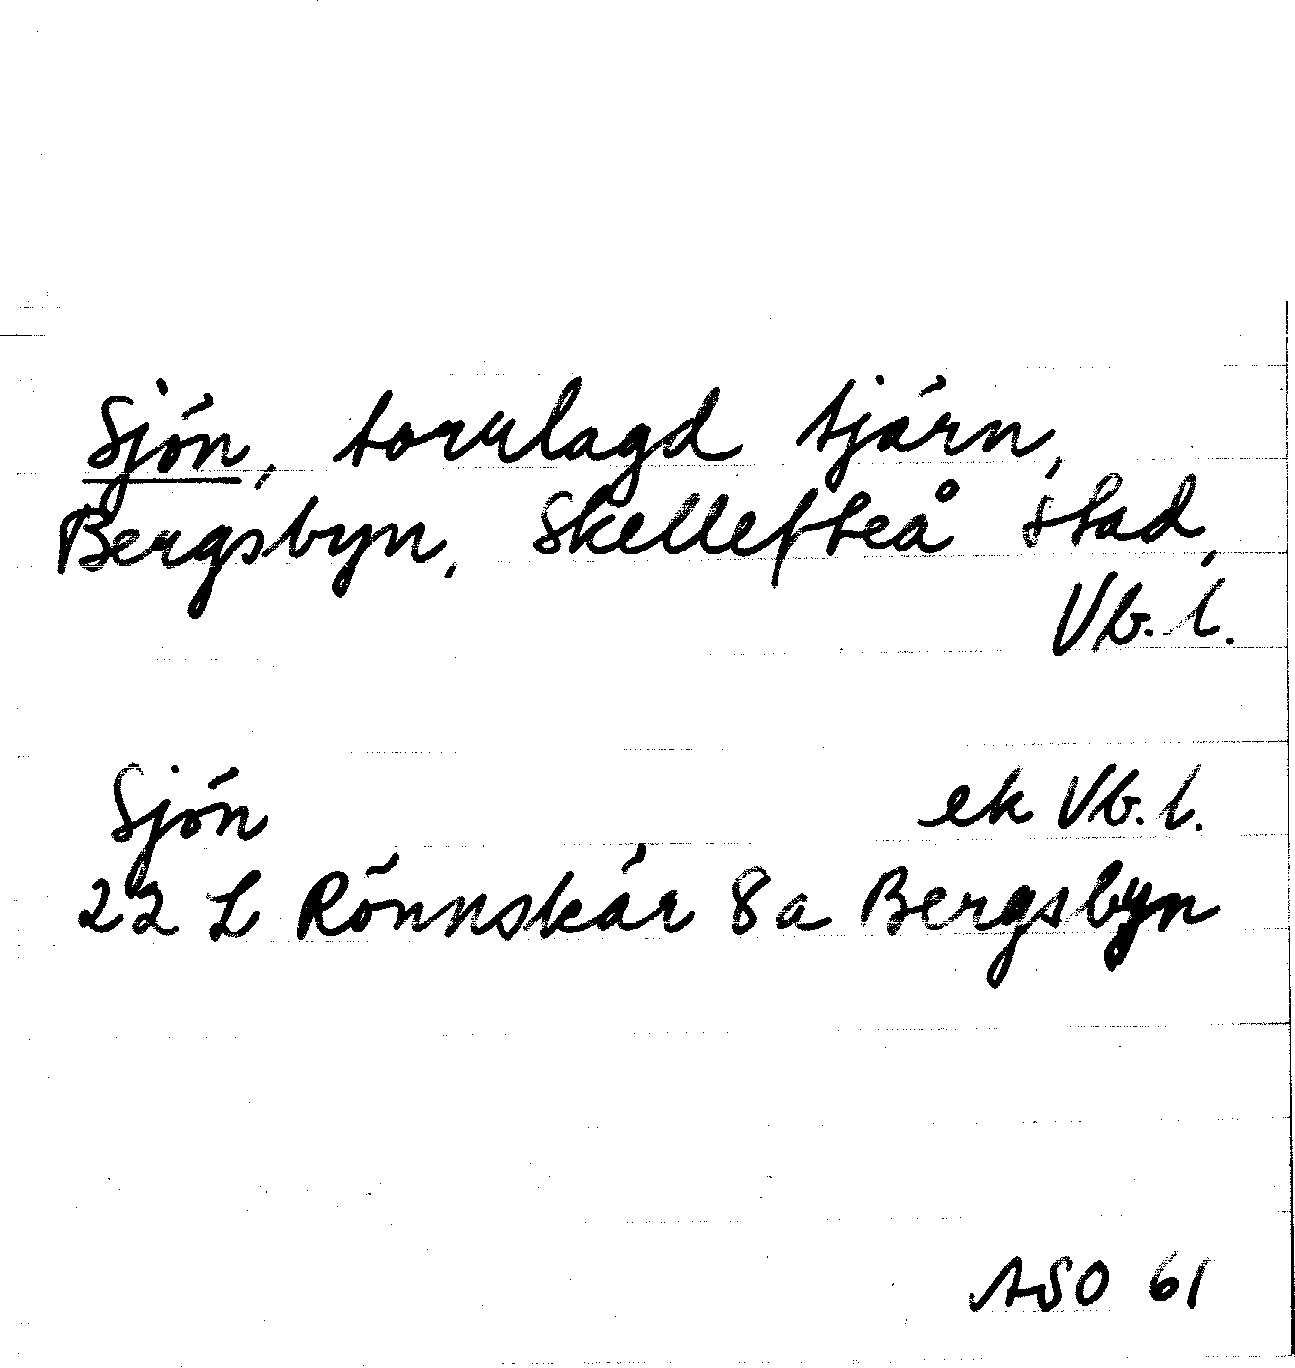 Sjön, torrlagd tjärn,
Bergsbyn, Skellefteå stad,
Vb. l.
Sjön ek Vb. l.
22 L Rönnskär 8a Bergsbyn
ASO 61